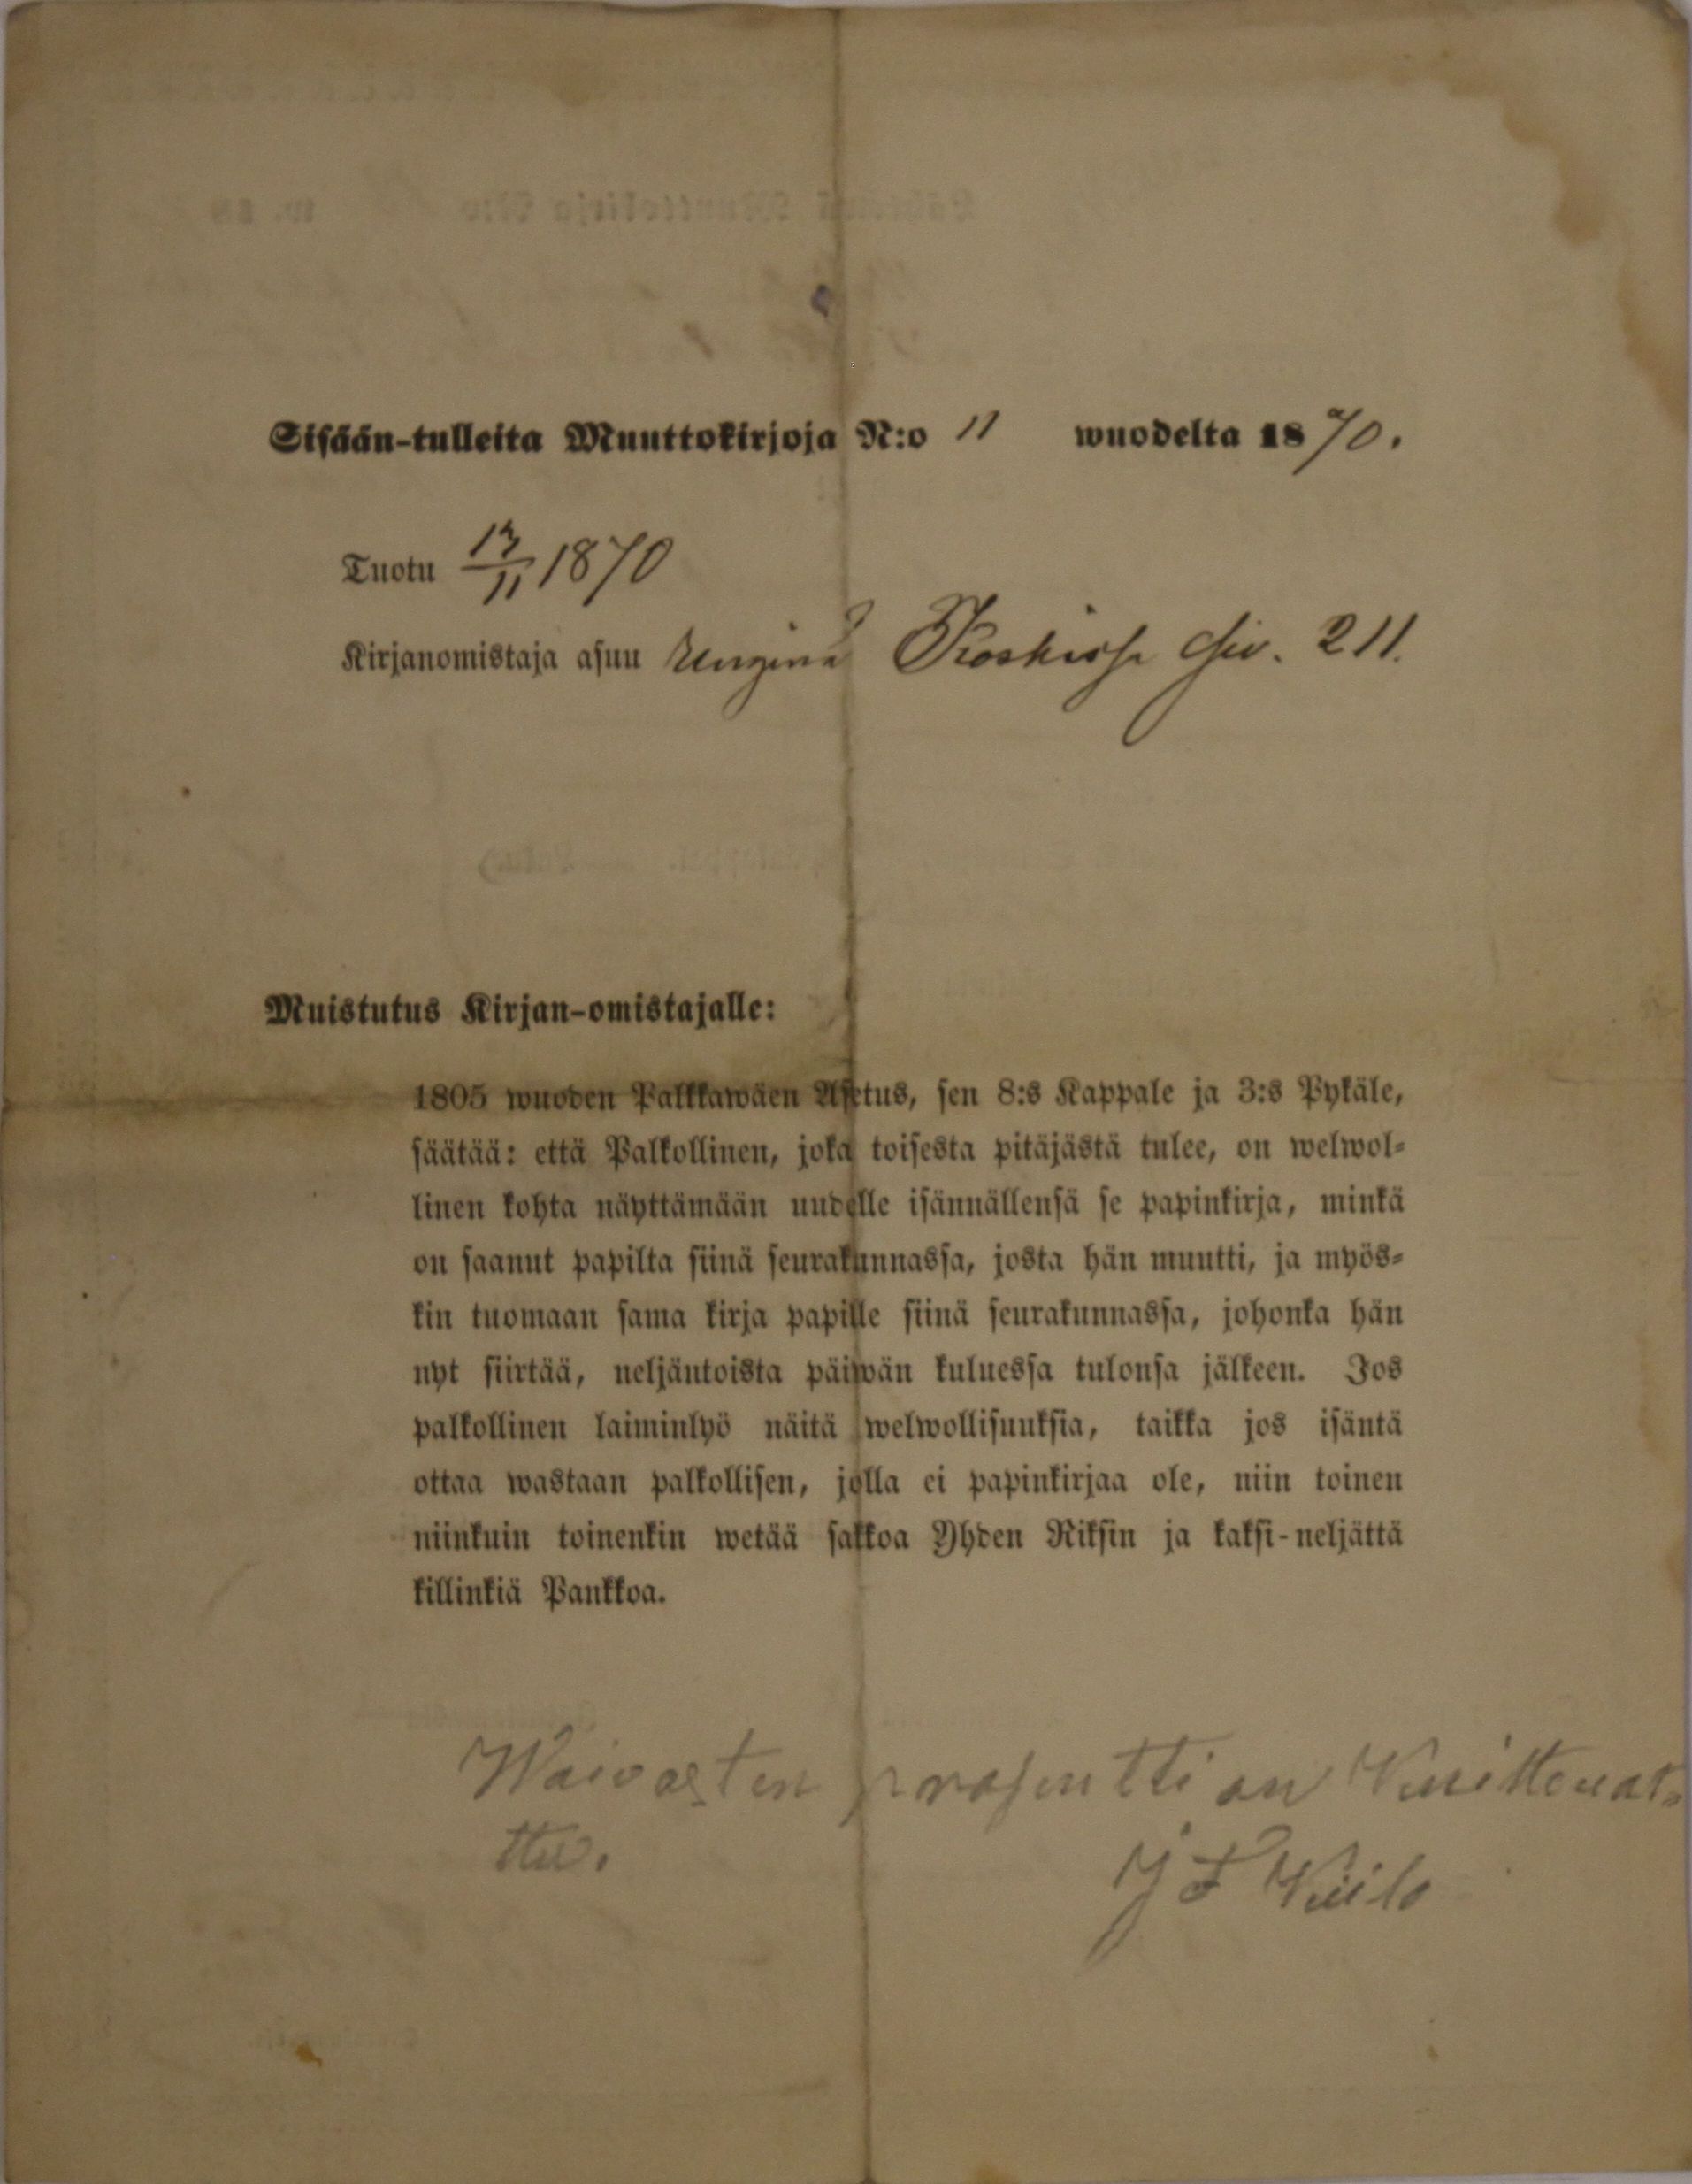 Sisään-tulleita Muuttokirjoja N:o 11 wuodelta 1870.
Tuotu 13/11 1870
Kirjanomistaja asuu Koskissa siv. 211.
Muistutus Kirjan-omistajalle:
1805 wuoden Palkkawäen Asetus, sen 8:s Kappale ja 3:s Pykäle,
säätää: että Palkollinen, joka toisesta pitäjästä tulee, on welwol-
linen kohta näyttämään uudelle isännällensä se papinkirja, minkä
on saanut papilta siinä seurakunnassa, josta hän muutti, ja myös-
kin tuomaan sama kirja papille siinä seurakunnassa, johonka hän
nyt siirtää, neljäntoista päiwän kuluessa tulonsa jälkeen. Jos
palkollinen laiminlyö näitä welwollisuuksia, taikka jos isäntä
ottaa wastaan palkollisen, jolla ei papinkirjaa ole, niin toinen
niinkuin toinenkin wetää sakkoa Yhden Riksin ja kaksi-neljättä
killinkiä Pankkoa.
Waivasten prosentti on
ttu.